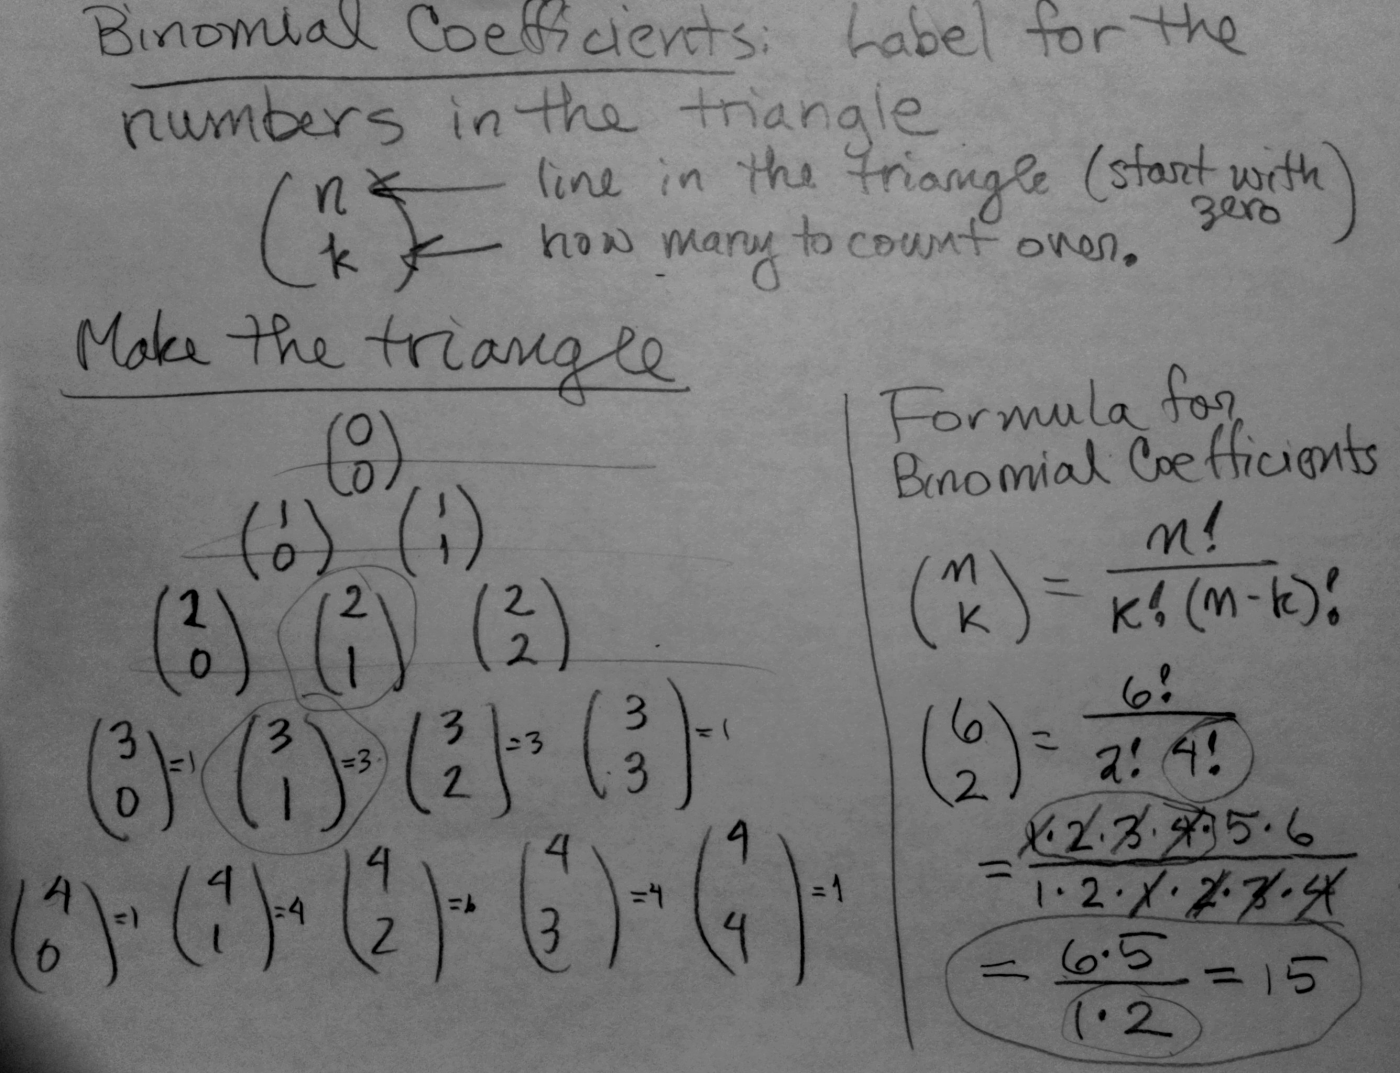 Binomial Coefficients: Label for the
numbers in the triangle
(n k) ← line in the triangle (start with zero)
← how many to count over.
Make the triangle
(0 0)
(1 0) (1 1)
(2 0) (2 1) (2 2)
(3 0) =1 (3 1) =3 (3 2) =3 (3 3) =1
(4 0) =1 (4 1) =4 (4 2) =6 (4 3) =4 (4 4) =1
Formula for
Binomial Coefficients
(n k) = n! / k! (n-k)!
(6 2) = 6! / 2! 4!
= 1·2·3·4·5·6 / 1·2·1·2·3·4
= 6·5 / 1·2 = 15